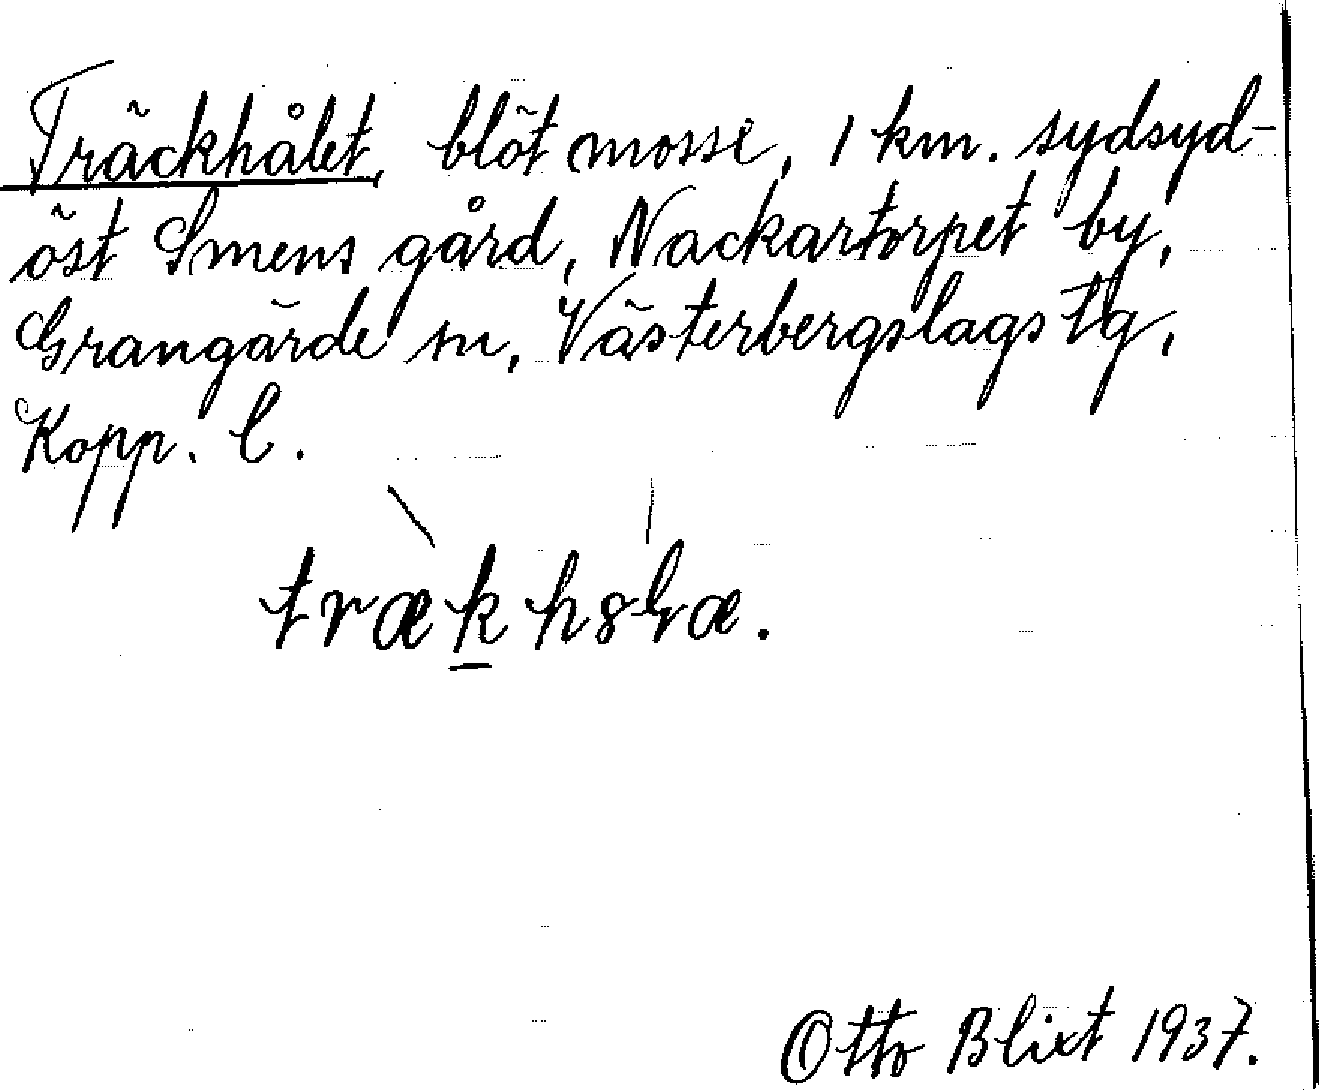 Träckhålet, blöt mosse, 1 km. sydsyd-
öst Smens gård, Nackartorpet by,
Grangärde sn, Västerbergslags tg,
Kopp. l.
Otto Blixt 1937.